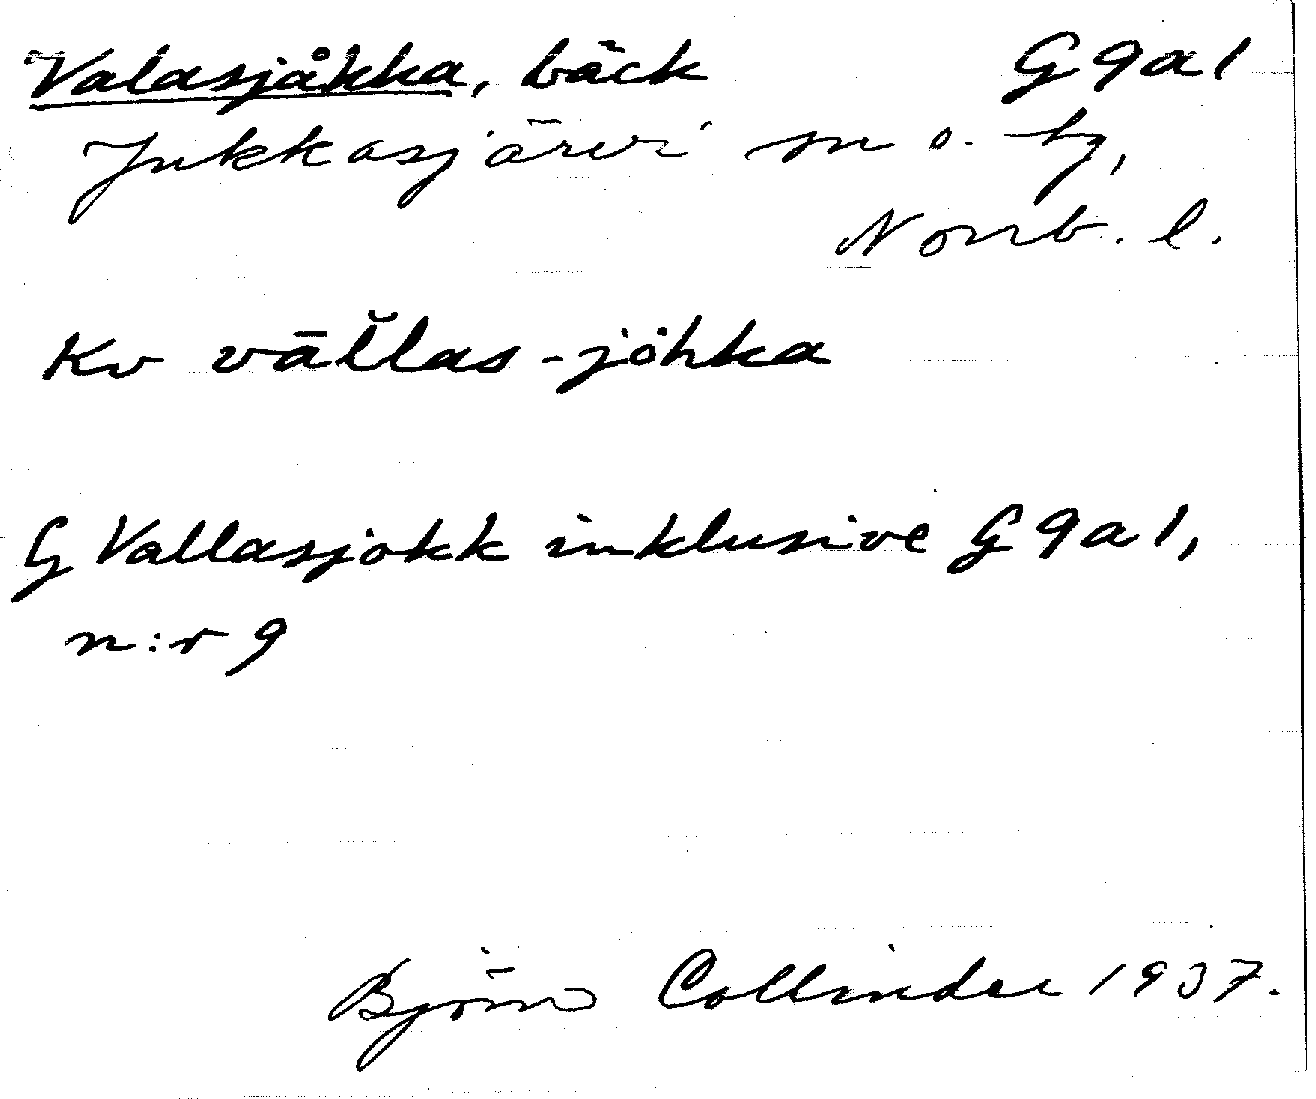 Valasjåkka, bäck G9a1
Jukkasjärvi sn o. tg,
Norrb. l.
Kv vāl̆las-jȯhka
G Vallasjokk inklusive G9a1,
n:r 9
Björn Collinder 1937.